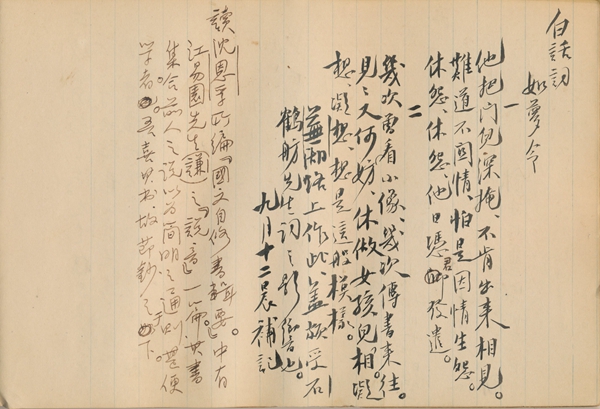 白話詞
如夢令
一
他把門兒深掩、不肯出来相見。
難道不關情、怕是因情生怨。
休怨、休怨、他日憑君發遣。
二
幾次曾看小像、幾次傳書来往。
見々又何妨、休做女孩兒相。凝
想、凝想、想是這般模様。
蕪湖路上作此、蓋頗受石
鶴舫先生詞之影響也。
九月十二晨補記
讀沈恩孚所編「國文自修書輯要」中有
江易園先生（謙）之「說音」一篇。其書
集合前人之說以為簡明之通則、最便
学者。吾喜其書、故節鈔之如下。